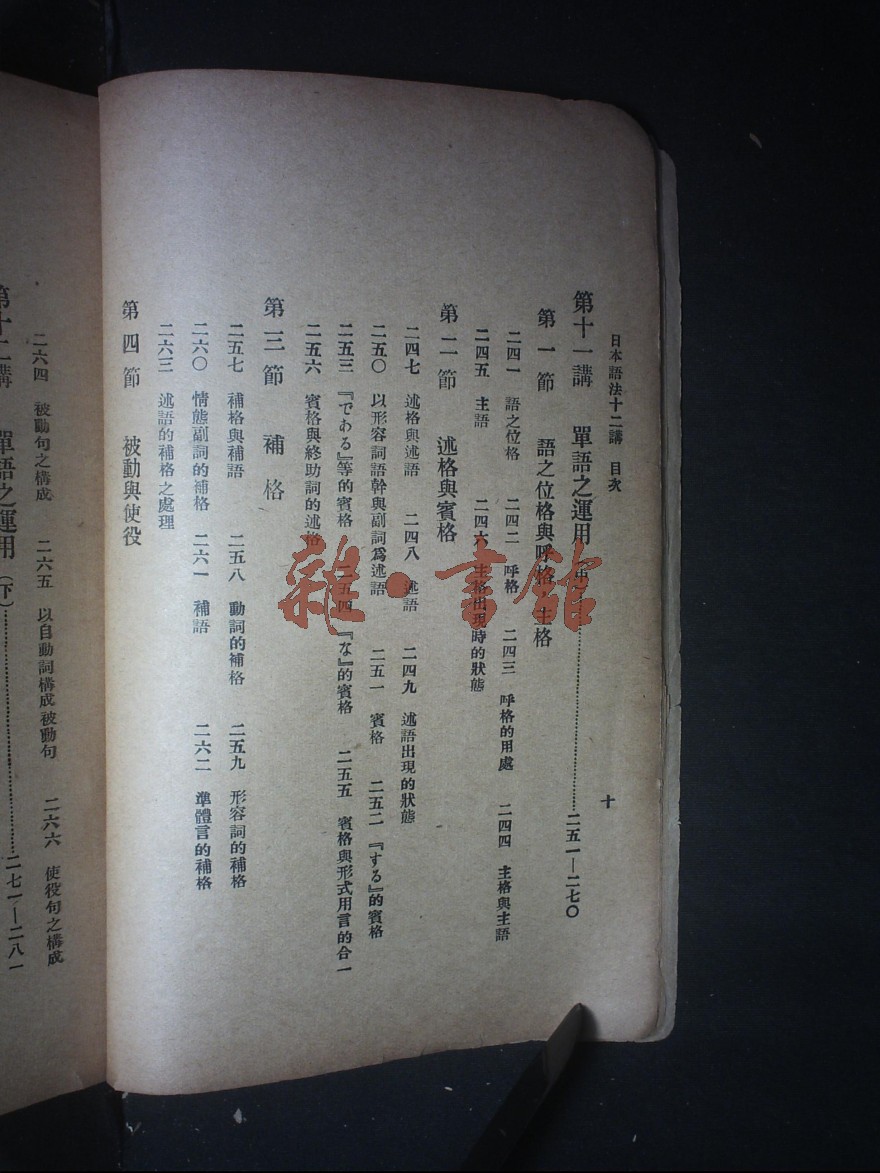 日本語法十二講 目次 十
第十一講 單語之運用(中)……二五一—二七〇
第一節 語之位格與呼格、主格
二四一 語之位格 二四二 呼格 二四三 呼格的用處 二四四 主格與主語
二四五 主語 二四六 主格出現時的狀態
第二節 述格與賓格
二四七 述格與述語 二四八 述語 二四九 述語出現的狀態
二五〇 以形容詞語幹與副詞爲述語 二五一 賓格 二五二 『する』的賓格
二五三 『である』等的賓格 二五四 『な』的賓格 二五五 賓格與形式用言的合一
二五六 賓格與終助詞的述格
第三節 補格
二五七 補格與補語 二五八 動詞的補格 二五九 形容詞的補格
二六〇 情態副詞的補格 二六一 補語 二六二 準體言的補格
二六三 述語的補格之處理
第四節 被動與使役
二六四 被動句之構成 二六五 以自動詞構成被動句 二六六 使役句之構成
第十二講 單語之運用(下)……二七一—二八一
雜·書館